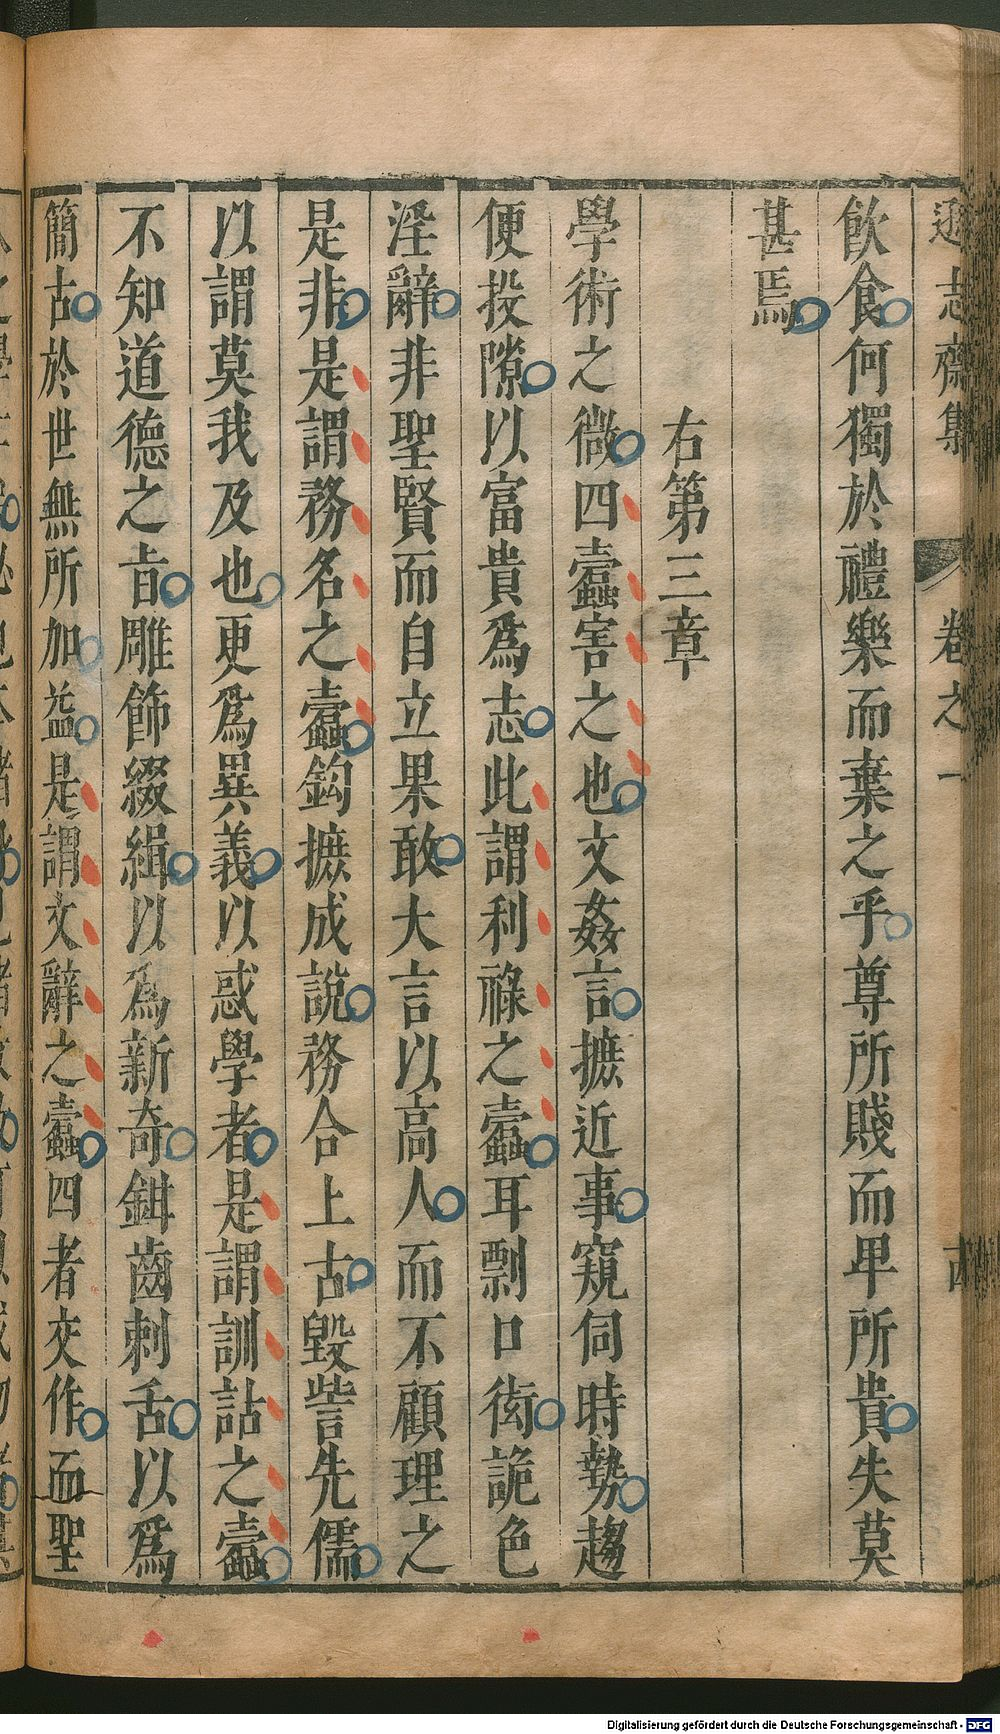 遜志齋集 卷之一
飲食何獨於禮樂而棄之乎尊所賤而𤰞所貴失莫
甚焉
右第三章
學術之微四蠧害之也文姦言摭近事窺伺時勢趨
便投隙以富貴爲志此謂利祿之蠧耳剽口衒詭色
淫辭非聖賢而自立果敢大言以高人而不顧理之
是非是謂務名之蠧鈎摭成說務合上古毀訾先儒
以謂莫我及也更爲異義以惑學者是謂訓詁之蠧
不知道德之旨雕飾綴緝以爲新奇鉗齒刺舌以爲
簡古於世無所加益是謂文辭之蠧四者交作而聖
Digitalisierung gefördert durch die Deutsche Forschungsgemeinschaft - DFG